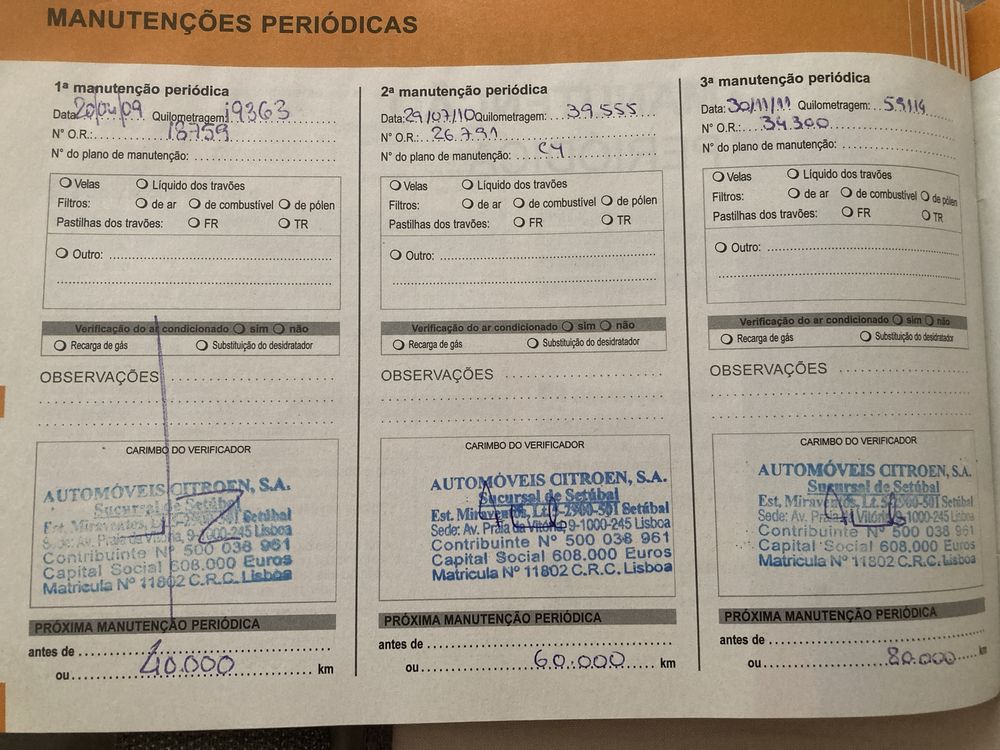 MANUTENÇÕES PERIÓDICAS
1ª manutenção periódica
Data: 20/04/09 Quilometragem: 19363
N° O.R.: 18759
N° do plano de manutenção:
Velas Líquido dos travões
Filtros: de ar de combustível de pólen
Pastilhas dos travões: FR TR
Outro:
Verificação do ar condicionado sim não
Recarga de gás Substituição do desidratador
OBSERVAÇÕES
CARIMBO DO VERIFICADOR
AUTOMÓVEIS CITROEN, S.A.
Sucursal de Setúbal
Est. Miraventos, Setúbal
Sede: Av. Praia da Vitória, 9-1000-245 Lisboa
Contribuinte Nº 500 038 961
Capital Social 608.000 Euros
Matricula Nº 11802 C.R.C. Lisboa
PRÓXIMA MANUTENÇÃO PERIÓDICA
antes de
ou 40.000 km
2ª manutenção periódica
Data: 29/07/10 Quilometragem: 39.555
N° O.R.: 26.791
N° do plano de manutenção: C4
Velas Líquido dos travões
Filtros: de ar de combustível de pólen
Pastilhas dos travões: FR TR
Outro:
Verificação do ar condicionado sim não
Recarga de gás Substituição do desidratador
OBSERVAÇÕES
CARIMBO DO VERIFICADOR
AUTOMÓVEIS CITROEN, S.A.
Sucursal de Setúbal
Est. Miraventos, Lt. 5-2900-501 Setúbal
Sede: Av. Praia da Vitória, 9-1000-245 Lisboa
Contribuinte Nº 500 038 961
Capital Social 608.000 Euros
Matricula Nº 11802 C.R.C. Lisboa
PRÓXIMA MANUTENÇÃO PERIÓDICA
antes de
ou 60.000 km
3ª manutenção periódica
Data: 30/11/11 Quilometragem: 59114
N° O.R.: 34.300
N° do plano de manutenção:
Velas Líquido dos travões
Filtros: de ar de combustível de pólen
Pastilhas dos travões: FR TR
Outro:
Verificação do ar condicionado sim não
Recarga de gás Substituição do desidratador
OBSERVAÇÕES
CARIMBO DO VERIFICADOR
AUTOMÓVEIS CITROEN, S.A.
Sucursal de Setúbal
Est. Miraventos, Lt. 5-2900-501 Setúbal
Sede: Av. Praia da Vitória, 9-1000-245 Lisboa
Contribuinte Nº 500 038 961
Capital Social 608.000 Euros
Matricula Nº 11802 C.R.C. Lisboa
PRÓXIMA MANUTENÇÃO PERIÓDICA
antes de
ou 80.000 km